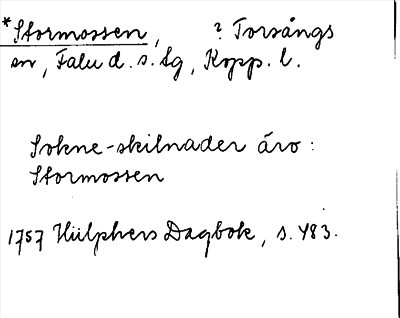 *Stormossen, ? Torsångs
sn, Falu d. s. lg, Kopp. l.
Sokne-skilnader äro:
Stormossen
1757 Hülphers Dagbok, s. 483.